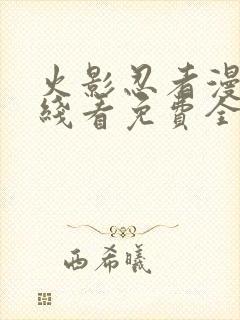 火影忍者漫
綫看免費全
西希曦